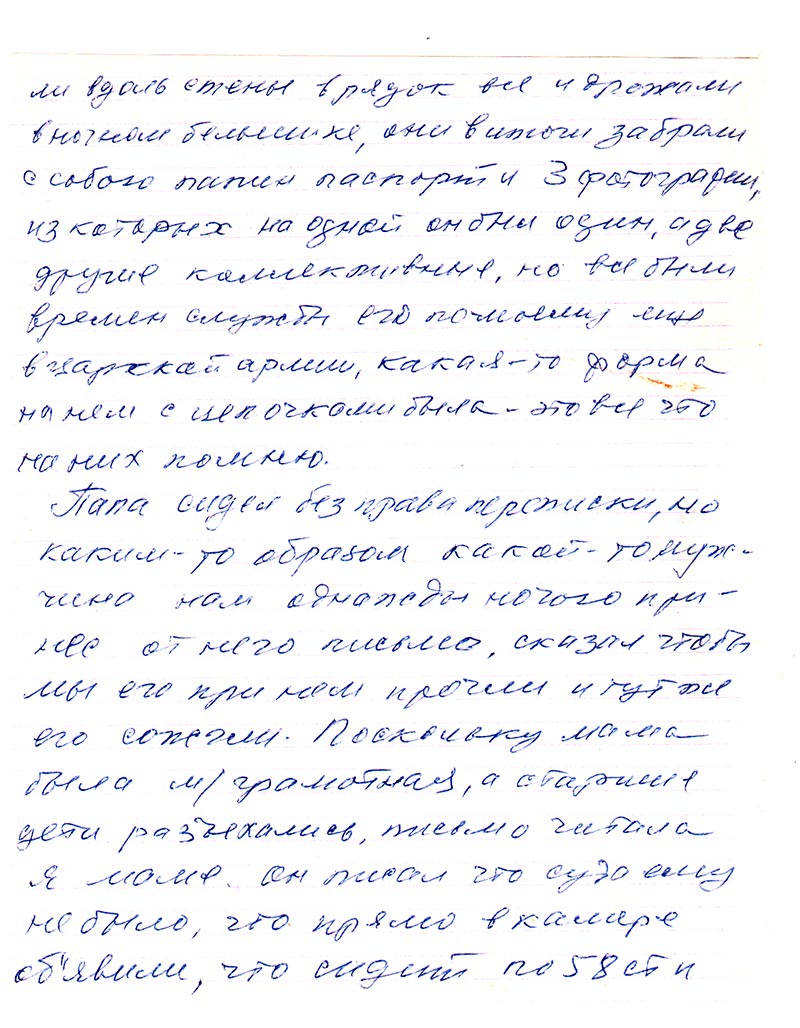 ли вдоль стены в рядок все и дрожали
в ночном бельишке, они в итоги забрали
с собою папин паспорт и 3 фотографии,
из которых на одной он был один, а две
другие коллективные, но все были
времен службы его помоему еще
в царской армии, какая-то форма
на нем с цепочками была - это все что
на них помню.
Папа сидел без права переписки, но
каким-то образом какой-то муж-
чина нам однажды ночью при-
нес от него письмо, сказал чтобы
мы его при нем прочли и тут же
его сожгли. Поскольку мама
была м/грамотная, а старшие
дети разъехались, письмо читала
я маме. Он писал что суда ему
не было, что прямо в камере
об"явили, что сидит по 58 ст и